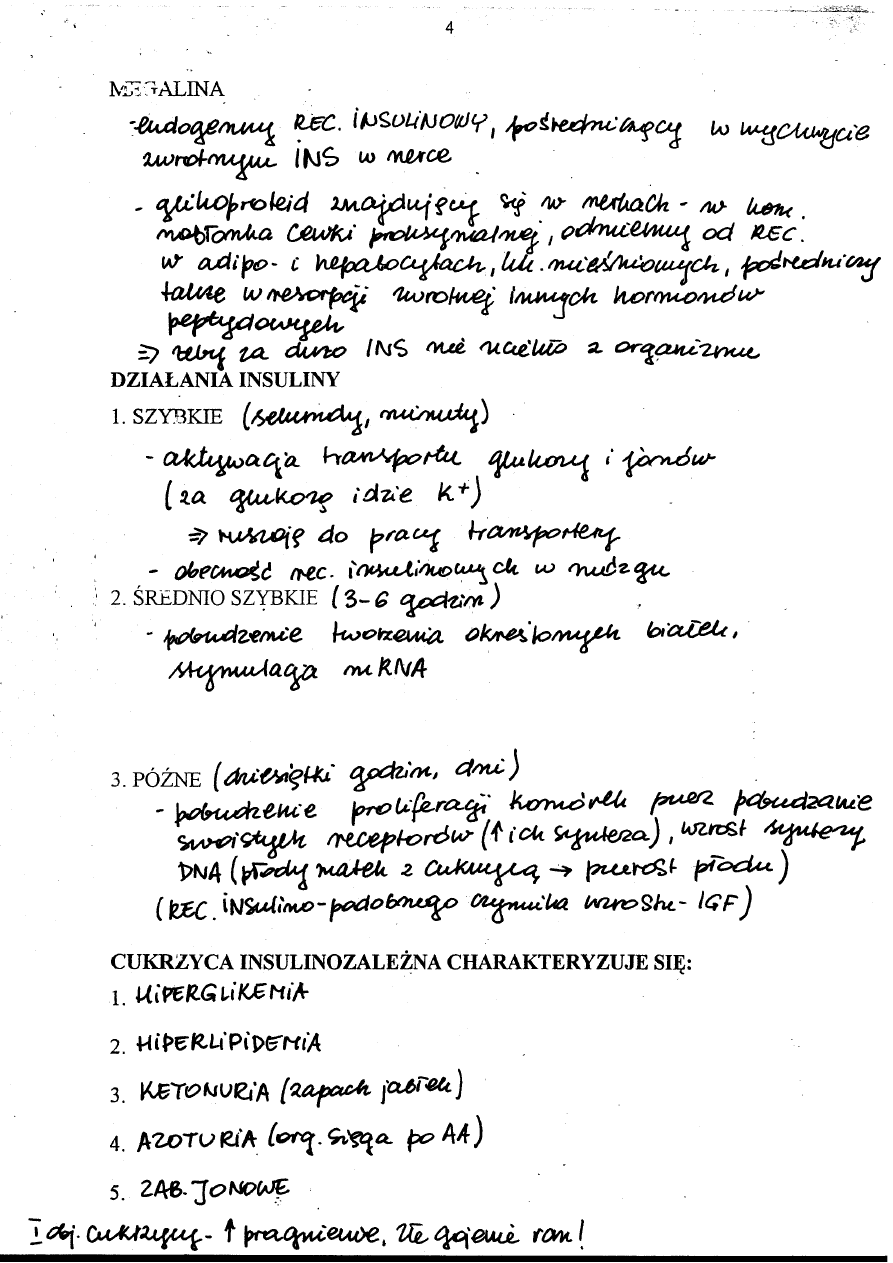 4
MEGALINA
- endogenny REC. INSULINOWY, pośredniczący w wychwycie
zwrotnym INS w nerce
- glikoproteid znajdujący się w nerkach - w kom.
nabłonka cewki proksymalnej, odmienny od REC.
w adipo- i hepatocytach, kk. mięśniowych, pośredniczy
także w resorpcji zwrotnej innych hormonów
peptydowych
⇒ żeby za dużo INS nie uciekło z organizmu
DZIAŁANIA INSULINY
1. SZYBKIE (sekundy, minuty)
- aktywacja transportu glukozy i jonów
(za glukozę idzie K+)
⇒ ruszają do pracy transportery
- obecność rec. insulinowych w mózgu
2. ŚREDNIO SZYBKIE (3-6 godzin)
- pobudzenie tworzenia określonych białek,
stymulacja mRNA
3. PÓŹNE (dziesiątki godzin, dni)
- pobudzenie proliferacji komórek przez pobudzanie
swoistych receptorów (↑ ich synteza), wzrost syntezy
DNA (płody matek z cukrzycą → przerost płodu)
(REC. INSulino-podobnego czynnika wzrostu - IGF)
CUKRZYCA INSULINOZALEŻNA CHARAKTERYZUJE SIĘ:
1. HIPERGLIKEMIA
2. HIPERLIPIDEMIA
3. KETONURIA (zapach jabłek)
4. AZOTURIA (org. sięga po AA)
5. ZAB. JONOWE
I obj. cukrzycy - ↑ pragnienie, złe gojenie ran!